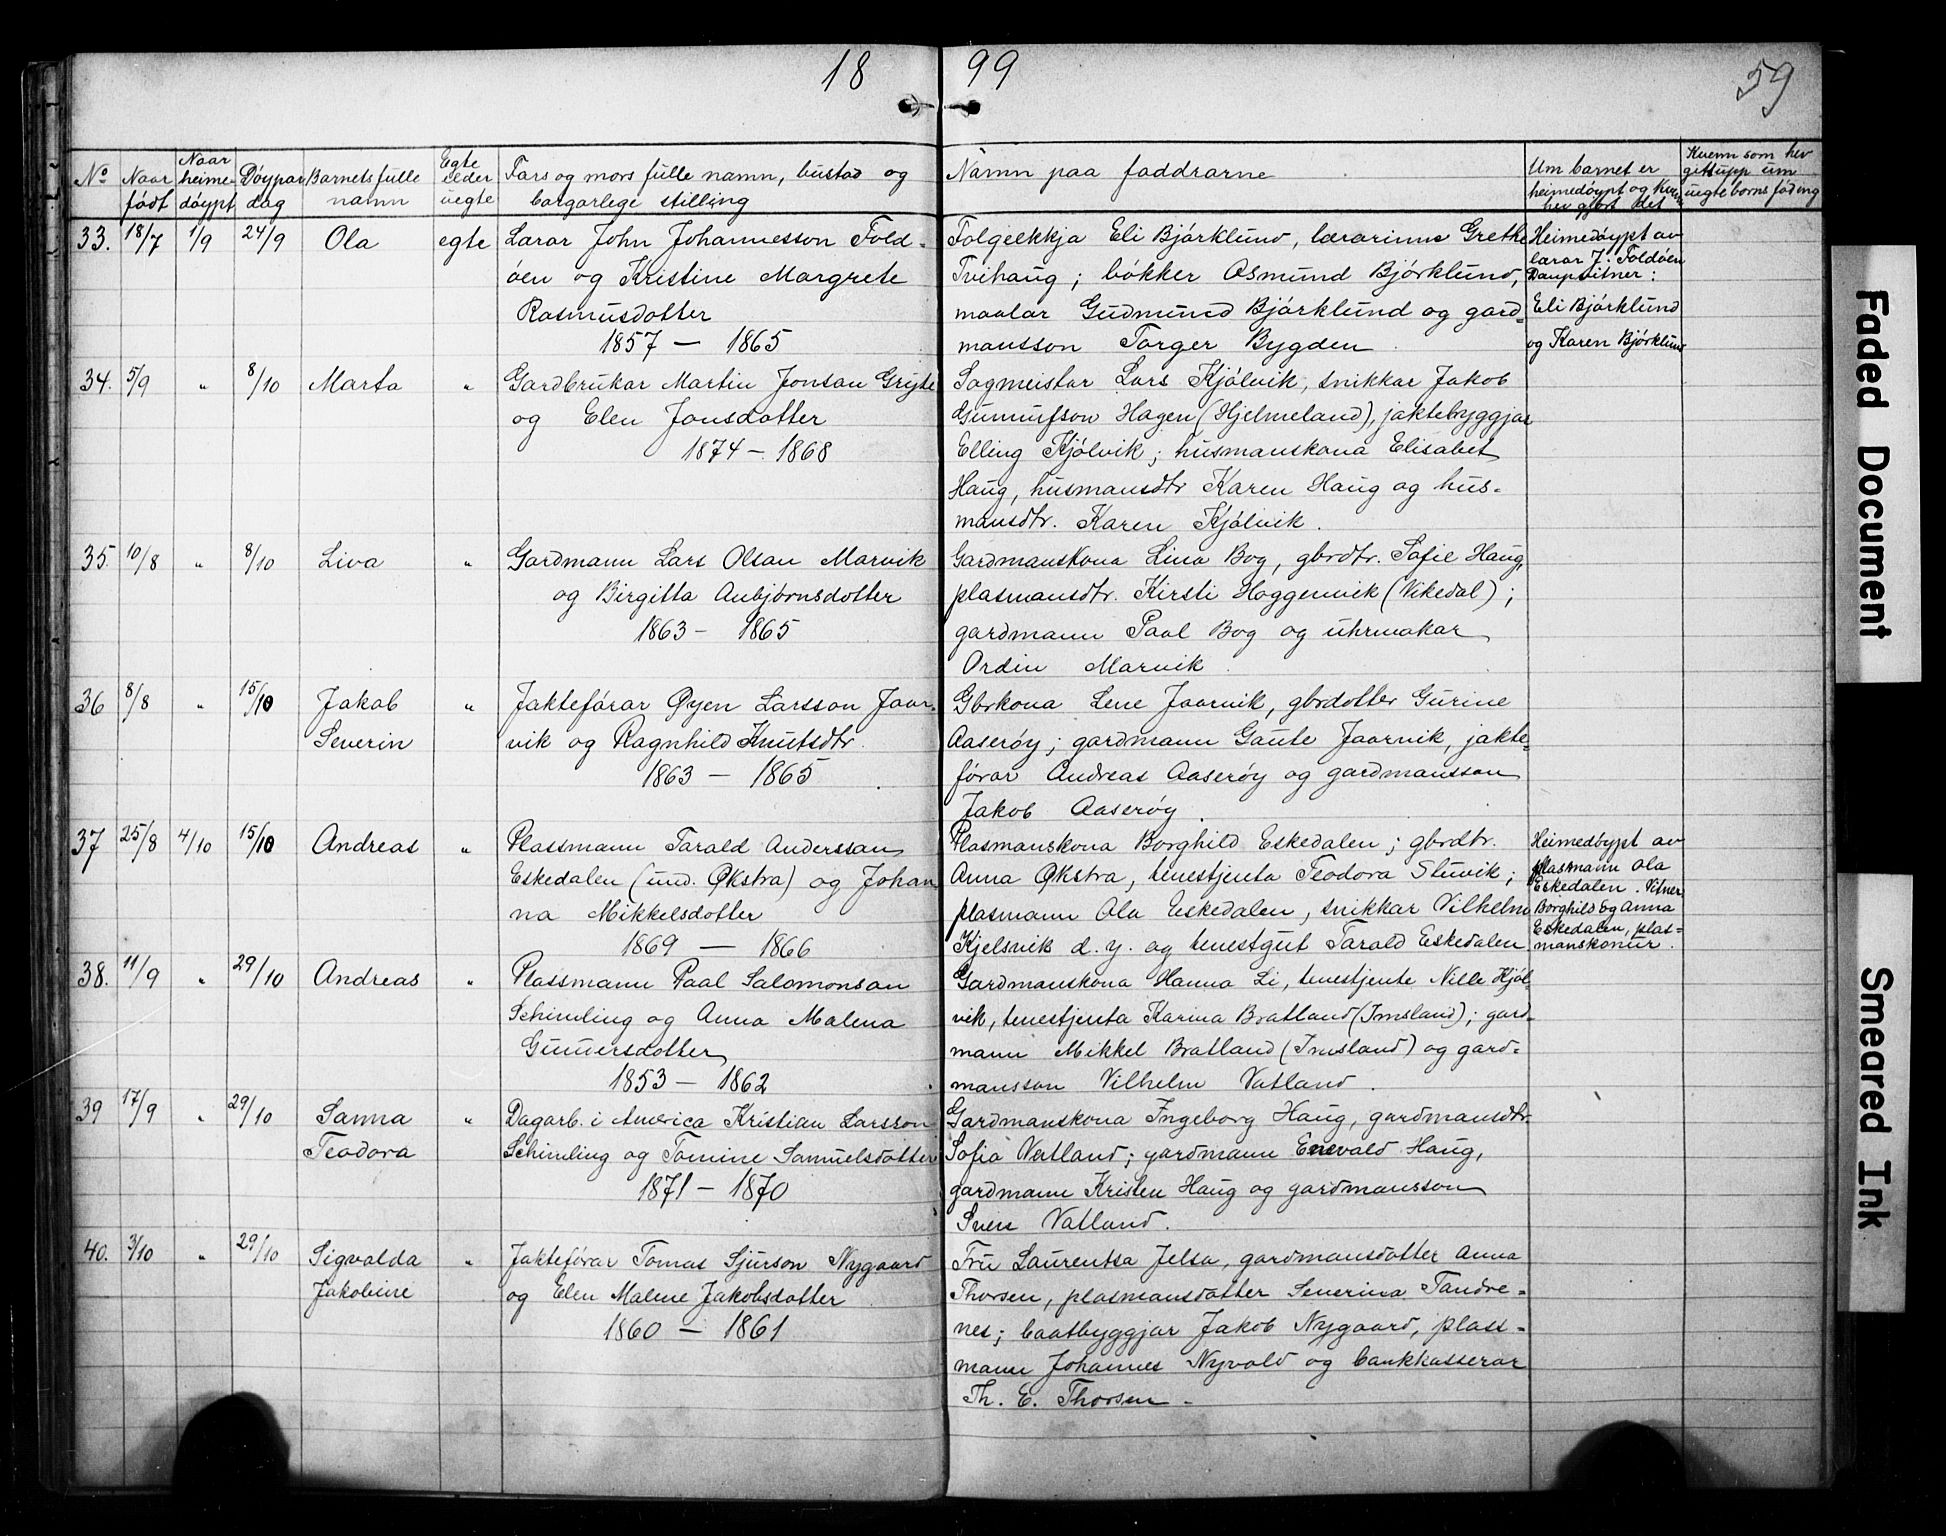 18 99
59
No Naar født Naar heimedøypt Døypardag Barnets fulle namn Egte elder uegte Fars og mors fulle namn, bustad og borgarlege stilling Namn paa faddrarne Um barnet er heimedøypt og kven hev gjort det Kvenn som hev gitt upp um uegte borns föding
33. 18/7 1/9 24/9 Ola egte Lærar John Johannesson Fold-
øen og Kristine Margrete
Rasmusdotter
1857 — 1865
Folgeekkja Eli Bjórklund, lærarinne Grethe
Tvihaug; bókker Osmund Bjórklund,
maalar Gudmund Bjórklund og gard-
mansson Torger Bygden
Heimedóypt av
lærar J. Foldóen
Daupvitner:
Eli Bjórklund
og Karen Bjórklund
34. 5/9 " 8/10 Marta " Gardbrukar Martin Jonson Grijte
og Elen Jonsdotter
1874 — 1868
Sagmeistar Lars Kjólvik, snikkar Jakob
Gunnulfson Hagen (Hjelmeland), jaktebyggjar
Elling Kjólvik; husmanskona Elisabet
Haug, husmansdtr Karen Haug og hus-
mansdtr. Karen Kjólvik.
35. 10/8 " 8/10 Liva " Gardmann Lars Olson Marvik
og Birgitta Anbjórnsdotter
1863 — 1865
Gardmanskona Lina Bog, gbrdtr. Sofie Haug,
plasmansdtr. Kirsti Hoggenvik (Vikedal);
gardmann Paal Bog og uhrmakar
Ordin Marvik.
36 8/8 " 15/10 Jakob
Severin " Jaktefórar Øyen Larsson Jaar-
vik og Ragnhild Knutsdtr.
1863 — 1865
Gbrkona Lene Jaarvik, gbrdotter Gurine
Aaserøy; gardmann Gaute Jaarvik, jakte-
fórar Andreas Aaserøy og gardmansson
Jakob Aaserøy.
37 25/8 4/10 15/10 Andreas " Plassmann Tarald Andersson
Eskedalen (und. Økstra) og Johan
na Mikkelsdotter
1869 — 1866
Plasmanskona Borghild Eskedalen; gbrdtr.
Anna Økstra, tenestjenta Teodora Stuvik;
plasmann Ola Eskedalen, snikkar Vilhelm
Kjelsvik d. y. og tenestgut Tarald Eskedalen
Heimedóypt av
plasmann Ola
Eskedalen. Vitner
Borghild og Anna
Eskedalen, plas-
manskonur.
38. 11/9 " 29/10 Andreas " Plassmann Paal Salomonson
Schimling og Anna Malena
Gunnersdotter
1853 — 1862
Gardmanskona Hanna Li, tenestjente Nille Hjól-
vik, tenestjenta Karina Bratland (Imsland); gard-
mann Mikkel Bratland (Imsland) og gard-
mansson Vilhelm Vatland.
39 17/9 " 29/10 Sanna
Teodora " Dagarb. i America Kristian Larsson
Schimling og Tomine Samuelsdotter
1871 — 1870
Gardmanskona Ingeborg Haug, gardmansdtr.
Sofia Vatland; gardmann Enevald Haug,
gardmann Kristen Haug og gardmansson
Sven Vatland.
40. 3/10 " 29/10 Sigvalda
Jakobine " Jaktefórar Tomas Sjurson Nygaard
og Elen Malene Jakobsdotter
1860 — 1861
Fru Laurentsa Jelsa, gardmansdotter Anna
Thorsen, plasmansdotter Severina Tandre-
nes; baatbyggjar Jakob Nygaard, plass-
mann Johannes Nyvold og bankkasserar
Th. E. Thorsen.
Faded Document
Smeared Ink